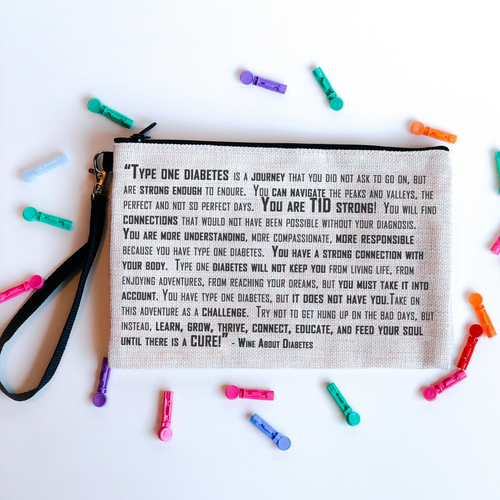 “Type one diabetes is a journey that you did not ask to go on, but
are strong enough to endure. You can navigate the peaks and valleys, the
perfect and not so perfect days. You are T1D strong! You will find
connections that would not have been possible without your diagnosis.
You are more understanding, more compassionate, more responsible
because you have type one diabetes. You have a strong connection with
your body. Type one diabetes will not keep you from living life, from
enjoying adventures, from reaching your dreams, but you must take it into
account. You have type one diabetes, but it does not have you.Take on
this adventure as a challenge. Try not to get hung up on the bad days, but
instead, learn, grow, thrive, connect, educate, and feed your soul
until there is a CURE!” - Wine About Diabetes